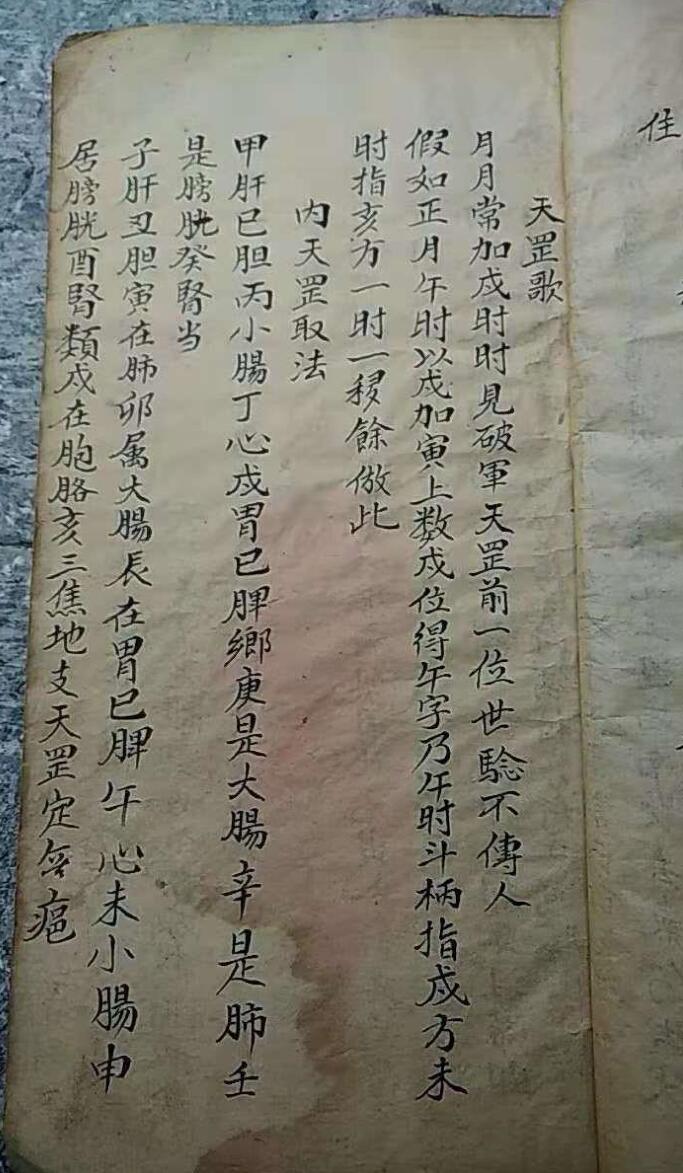 住
天罡歌
月月常加戌时时見破軍天罡前一位世騐不傳人
假如正月午时以戌加寅上数戌位得午字乃午时斗柄指戌方未
时指亥方一时一移餘倣此
内天罡取法
甲肝已胆丙小腸丁心戌胃已脾鄉庚是大腸辛是肺壬
是膀胱癸腎当
子肝丑胆寅在肺卯属大腸長在胃巳脾午心未小腸申
居膀胱酉腎類戌在胞胳亥三焦地支天罡定無疤